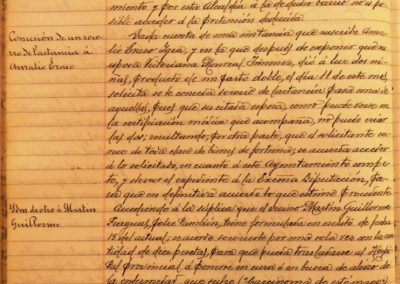 miento, y por esta Alcaldía á la de dicho barrio no es po-
sible acceder á la pretensión deducida.
Concesión de un socorro de lactancia á Amalio Eraso
Dada cuenta de una instancia que suscribe Ama-
lio Eraso Igea, y en la que después de exponer que su
esposa Victoriana Monreal Jimenez, dió á luz dos ni-
ñas, producto de un parto doble, el día 11 de este mes,
solicita se le conceda socorro de lactancia para una de
aquellas, pues que su citada esposa, como puede verse en
la certificación médica que acompaña, no puede criar
las dos; resultando, por otra parte, que el solicitante ca-
rece de toda clase de bienes de fortuna, se acuerda acceder
á lo solicitado, en cuanto á este Ayuntamiento compe-
te, y elevar el expediente á la Excma Diputación, pa-
ra que en definitiva acuerde lo que estime procedente
Idem de otro á Martin Guillorme
Accediendo á la súplica que el vecino Martin Guillorme
tiene formulada en escrito de fecha
15 del actual, se acordó socorrerle por una sola vez con la can-
tidad de diez pesetas, para que pueda trasladarse al Hospi-
tal provincial á ponerse en cura ó en busca de alivio de
la enfermedad que sufre (carcinoma de estómago)